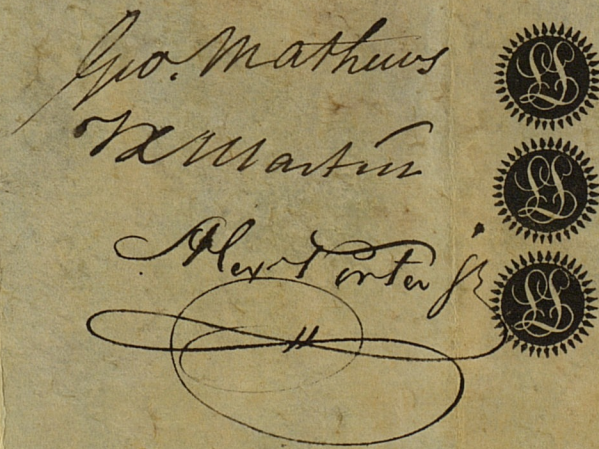 Geo. Mathews
LS
F X Martin
LS
Alexr Porter jr
LS